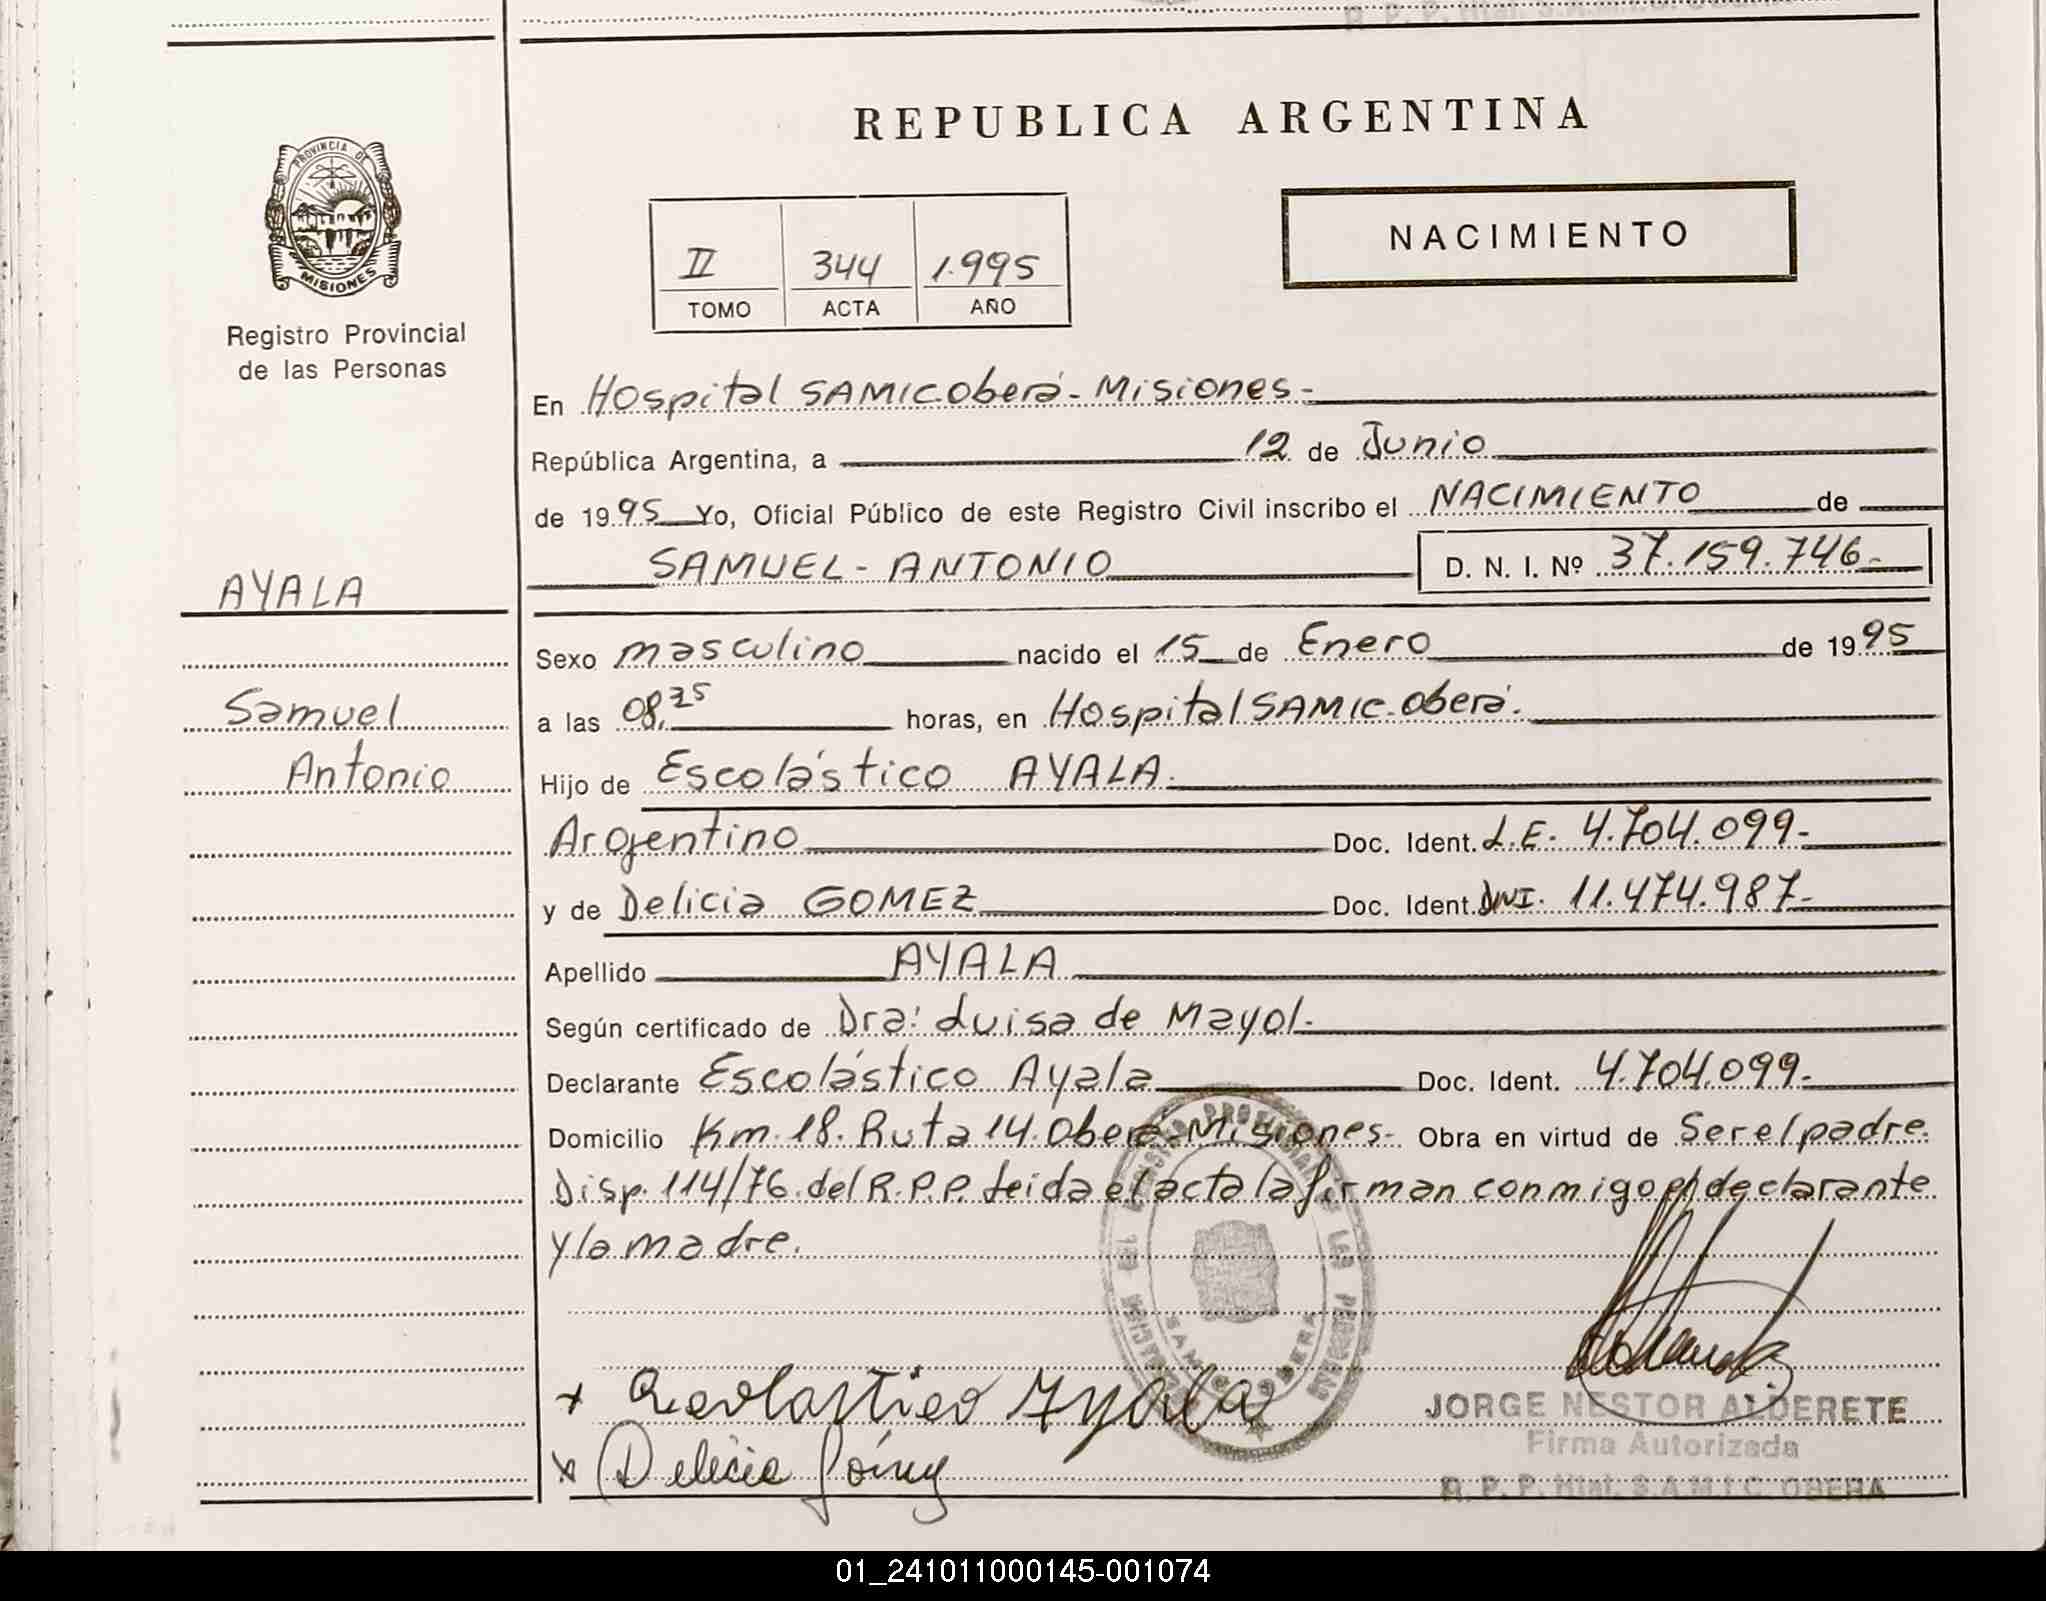 REPUBLICA ARGENTINA
PROVINCIA DE
MISIONES
Registro Provincial
de las Personas
II 344 1.995
TOMO ACTA AÑO
NACIMIENTO
En Hospital SAMIC Oberá - Misiones -
República Argentina, a 12 de Junio
de 1995 Yo, Oficial Público de este Registro Civil inscribo el NACIMIENTO de
SAMUEL - ANTONIO D. N. I. Nº 37.159.746-
AYALA
Samuel
Antonio
Sexo masculino nacido el 15 de Enero de 1995
a las 08,35 horas, en Hospital SAMIC. Oberá.
Hijo de Escolástico AYALA.
Argentino Doc. Ident. L.E. 4.704.099-
y de Delicia GOMEZ Doc. Ident. DNI. 11.474.987-
Apellido AYALA
Según certificado de Dra: Luisa de Mayol.
Declarante Escolástico Ayala Doc. Ident. 4.704.099-
Domicilio Km. 18. Ruta 14. Oberá - Misiones - Obra en virtud de Ser el padre.
Disp. 114/76. del R.P.P. Leida el acta la firman conmigo el declarante
y la madre.
x Escolastico Ayala
x Delicia
JORGE NESTOR ALDERETE
Firma Autorizada
R. P. P. Htal. S.A.M.I.C. OBERA
01_241011000145-001074